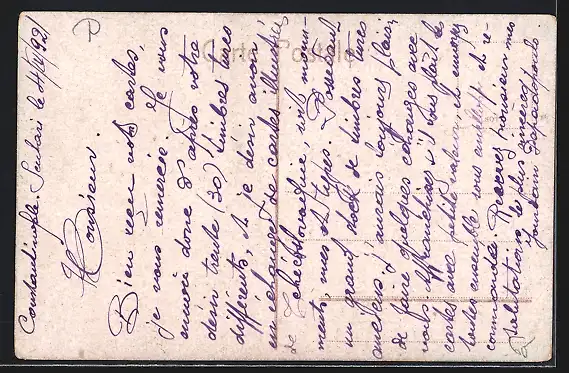 Constantinople-Scutari le 4/IV 921
Monsieur.
Bien reçu vos cartes,
je vous remercie. Je vous
envoie donc d'après votre
désir trente (30) timbres turcs
différents, et je désir avoir
en échange de cartes illustrées
de Tchécoslovaquie, soit monu-
ments, mes et types. Possédant
un grand stock de timbres turcs
anglais j'aurais toujours plaisir
de faire quelques échanges avec
vous. Affranchisez s'il vous plaît les
cartes avec petite valeur, et envoyez
toutes ensemble sous enveloppe et re-
commandée. Recevez monsieur mes
salutations les plus sincères
Papadopoulo
Carte Postale